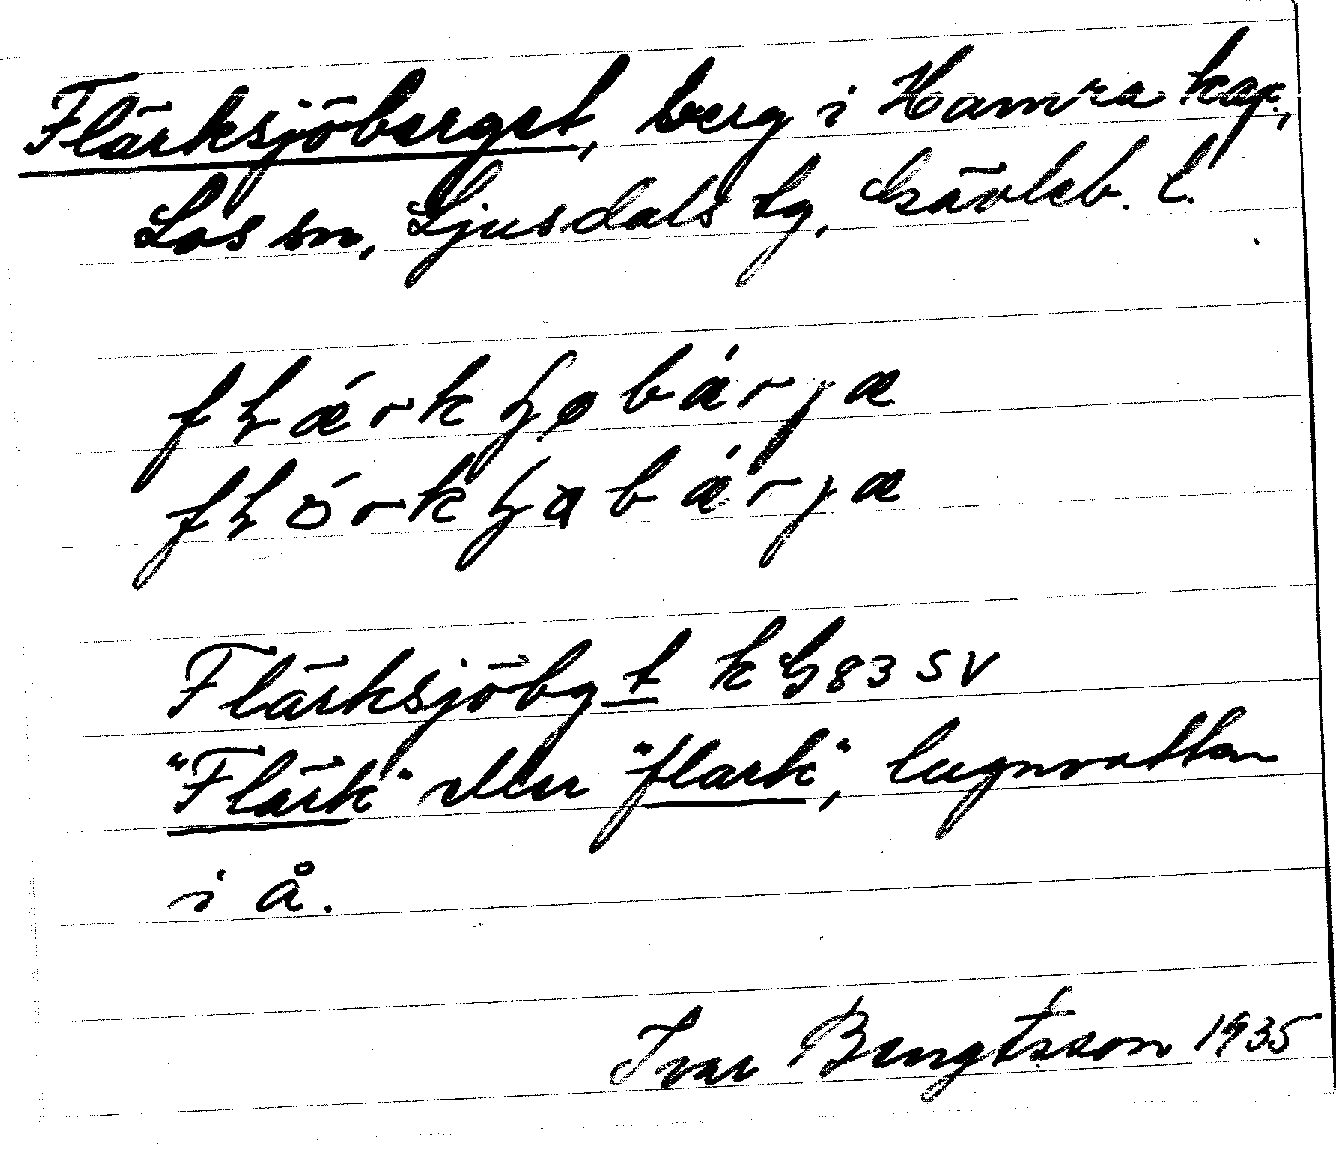 Flärksjöberget, berg i Hamra kap.,
Los sn, Ljusdals tg, Gävleb. l.
flǽrkʃøbǽrjæ
flǿrkʃabǽrjæ
Flärksjöbgt k G83 SV
"Flärk" eller "flark", lugnvatten
i å.
Ivar Bengtsson 1935